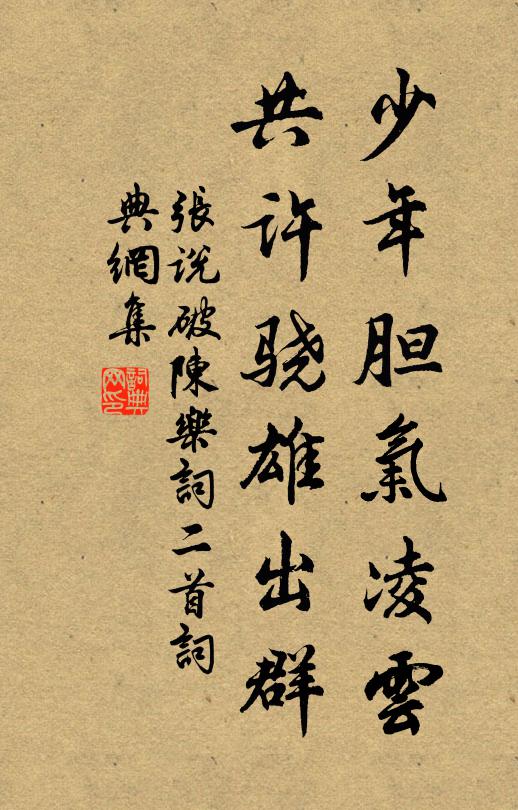 少年胆氣凌雲
共许骁雄出群
張说破陳樂詞二首詞
典網集
詞典
网印